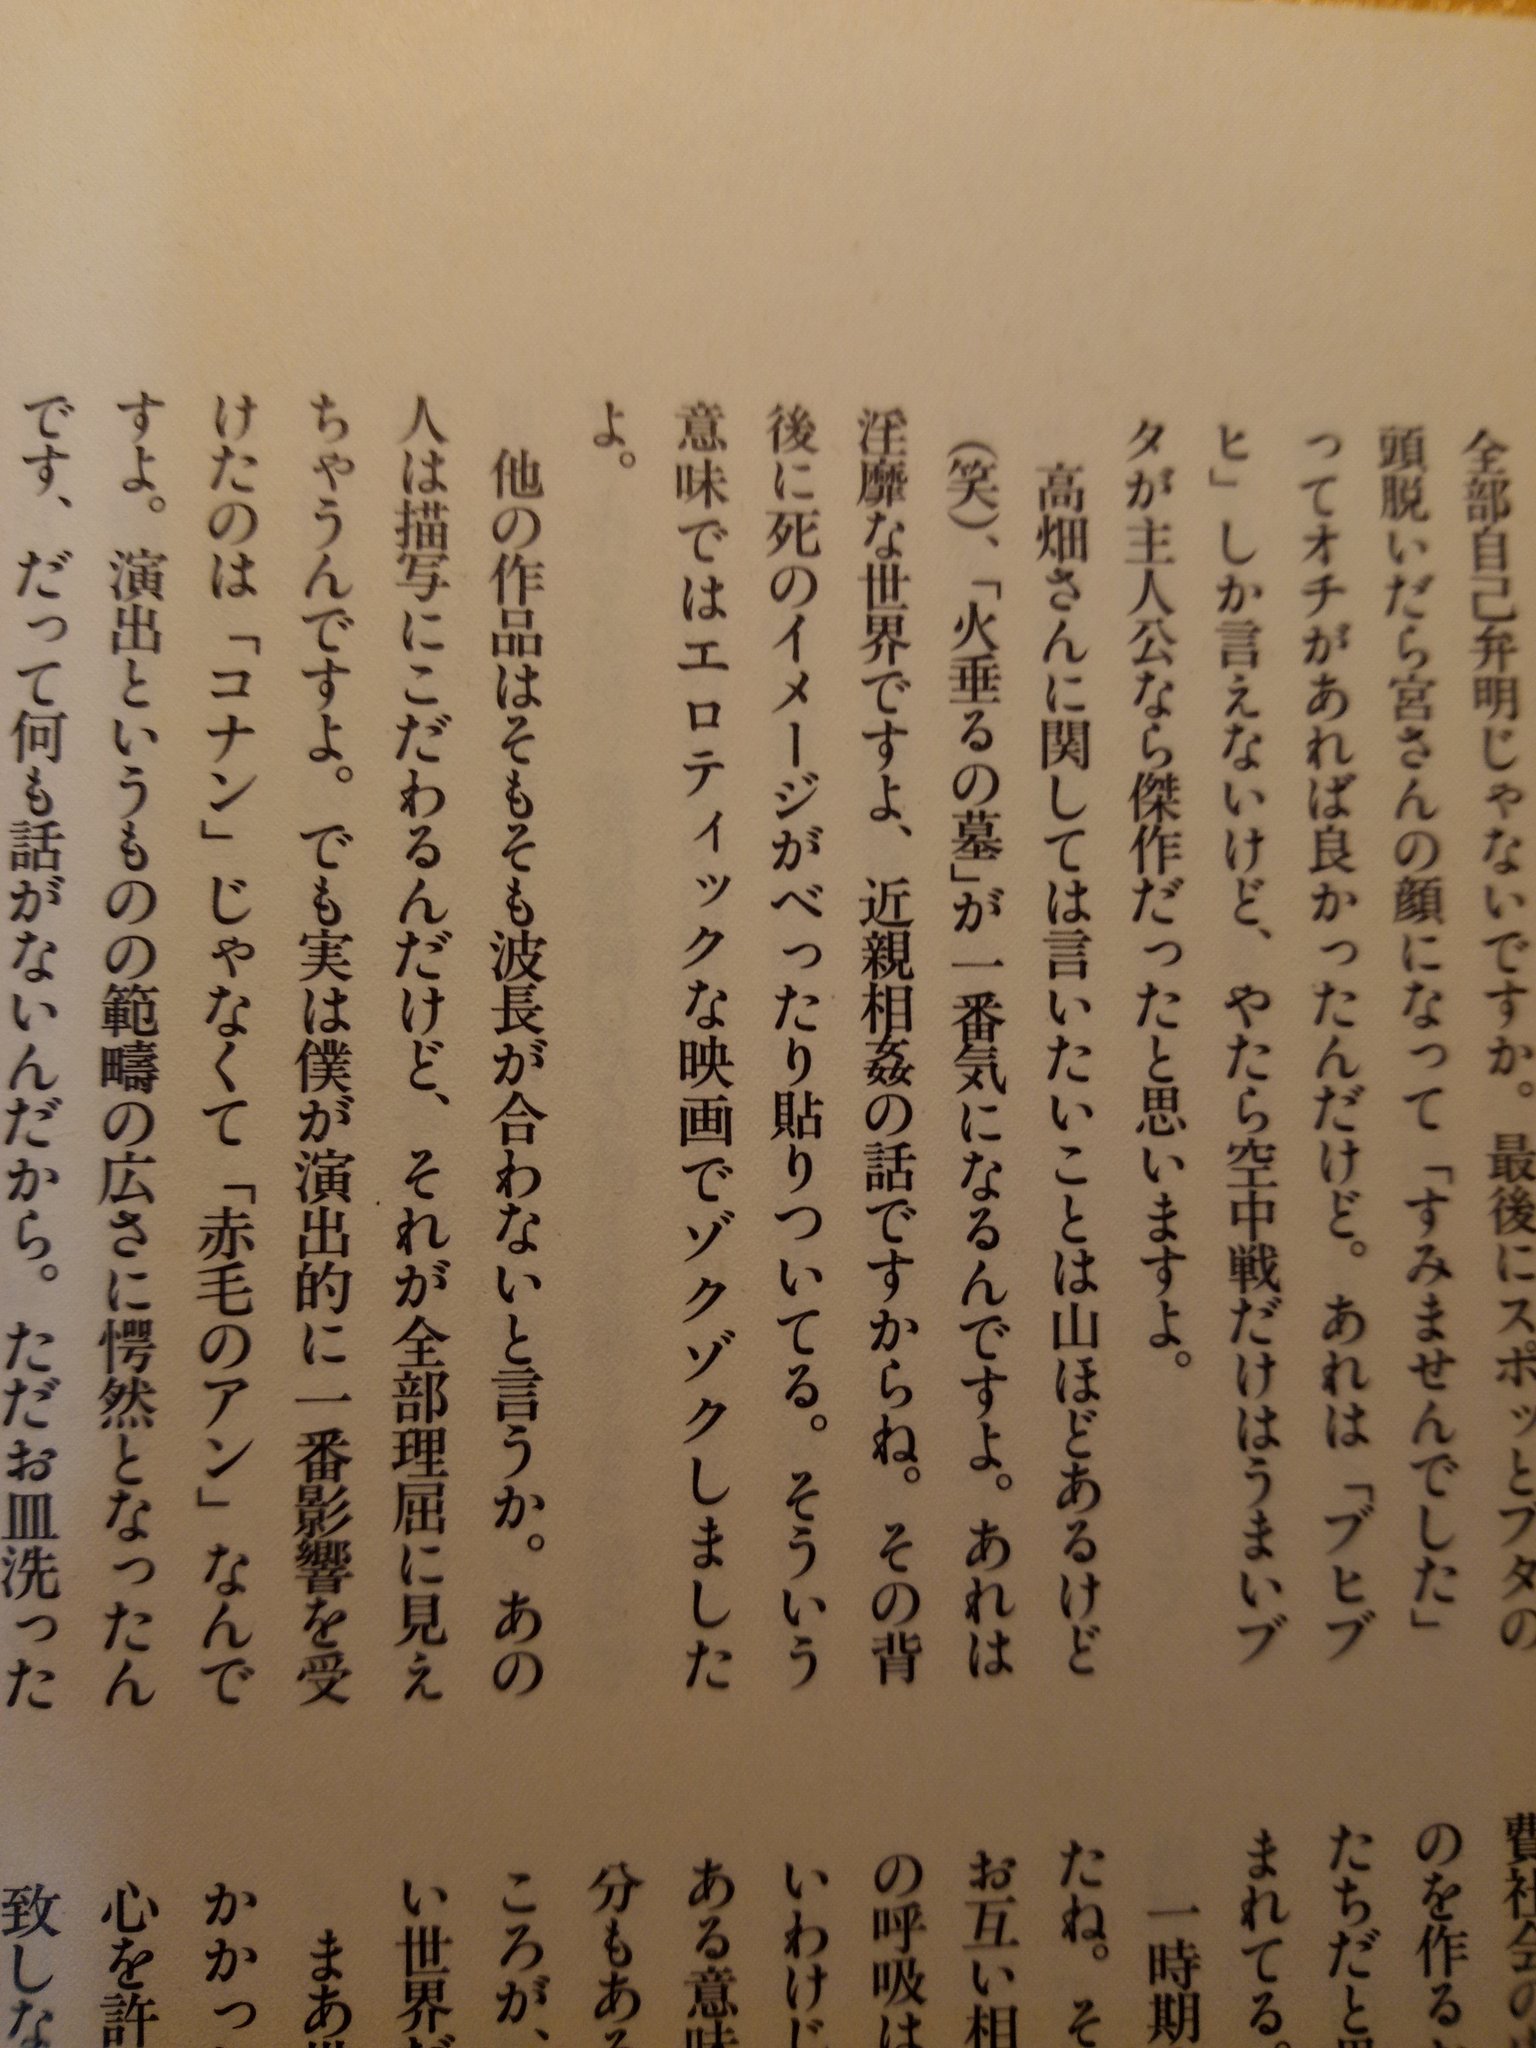 全部自己弁明じゃないですか。最後にスポッとブタの
頭脱いだら宮さんの顔になって「すみませんでした」
ってオチがあれば良かったんだけど。あれは「ブヒブ
ヒ」しか言えないけど、やたら空中戦だけはうまいブ
タが主人公なら傑作だったと思いますよ。
高畑さんに関しては言いたいことは山ほどあるけど
(笑)、「火垂るの墓」が一番気になるんですよ。あれは
淫靡な世界ですよ、近親相姦の話ですからね。その背
後に死のイメージがべったり貼りついてる。そういう
意味ではエロティックな映画でゾクゾクしました
よ。
他の作品はそもそも波長が合わないと言うか。あの
人は描写にこだわるんだけど、それが全部理屈に見え
ちゃうんですよ。でも実は僕が演出的に一番影響を受
けたのは「コナン」じゃなくて「赤毛のアン」なんで
すよ。演出というものの範疇の広さに愕然となったん
です、だって何も話がないんだから。ただお皿洗った
費社会の
のを作る
たちだと思
まれてる。
一時期
たね。そ
お互い相
の呼吸は
いわけじ
ある意味
分もあ
ころが、
い世界だ
まあ
かかっ
心を許
致しな